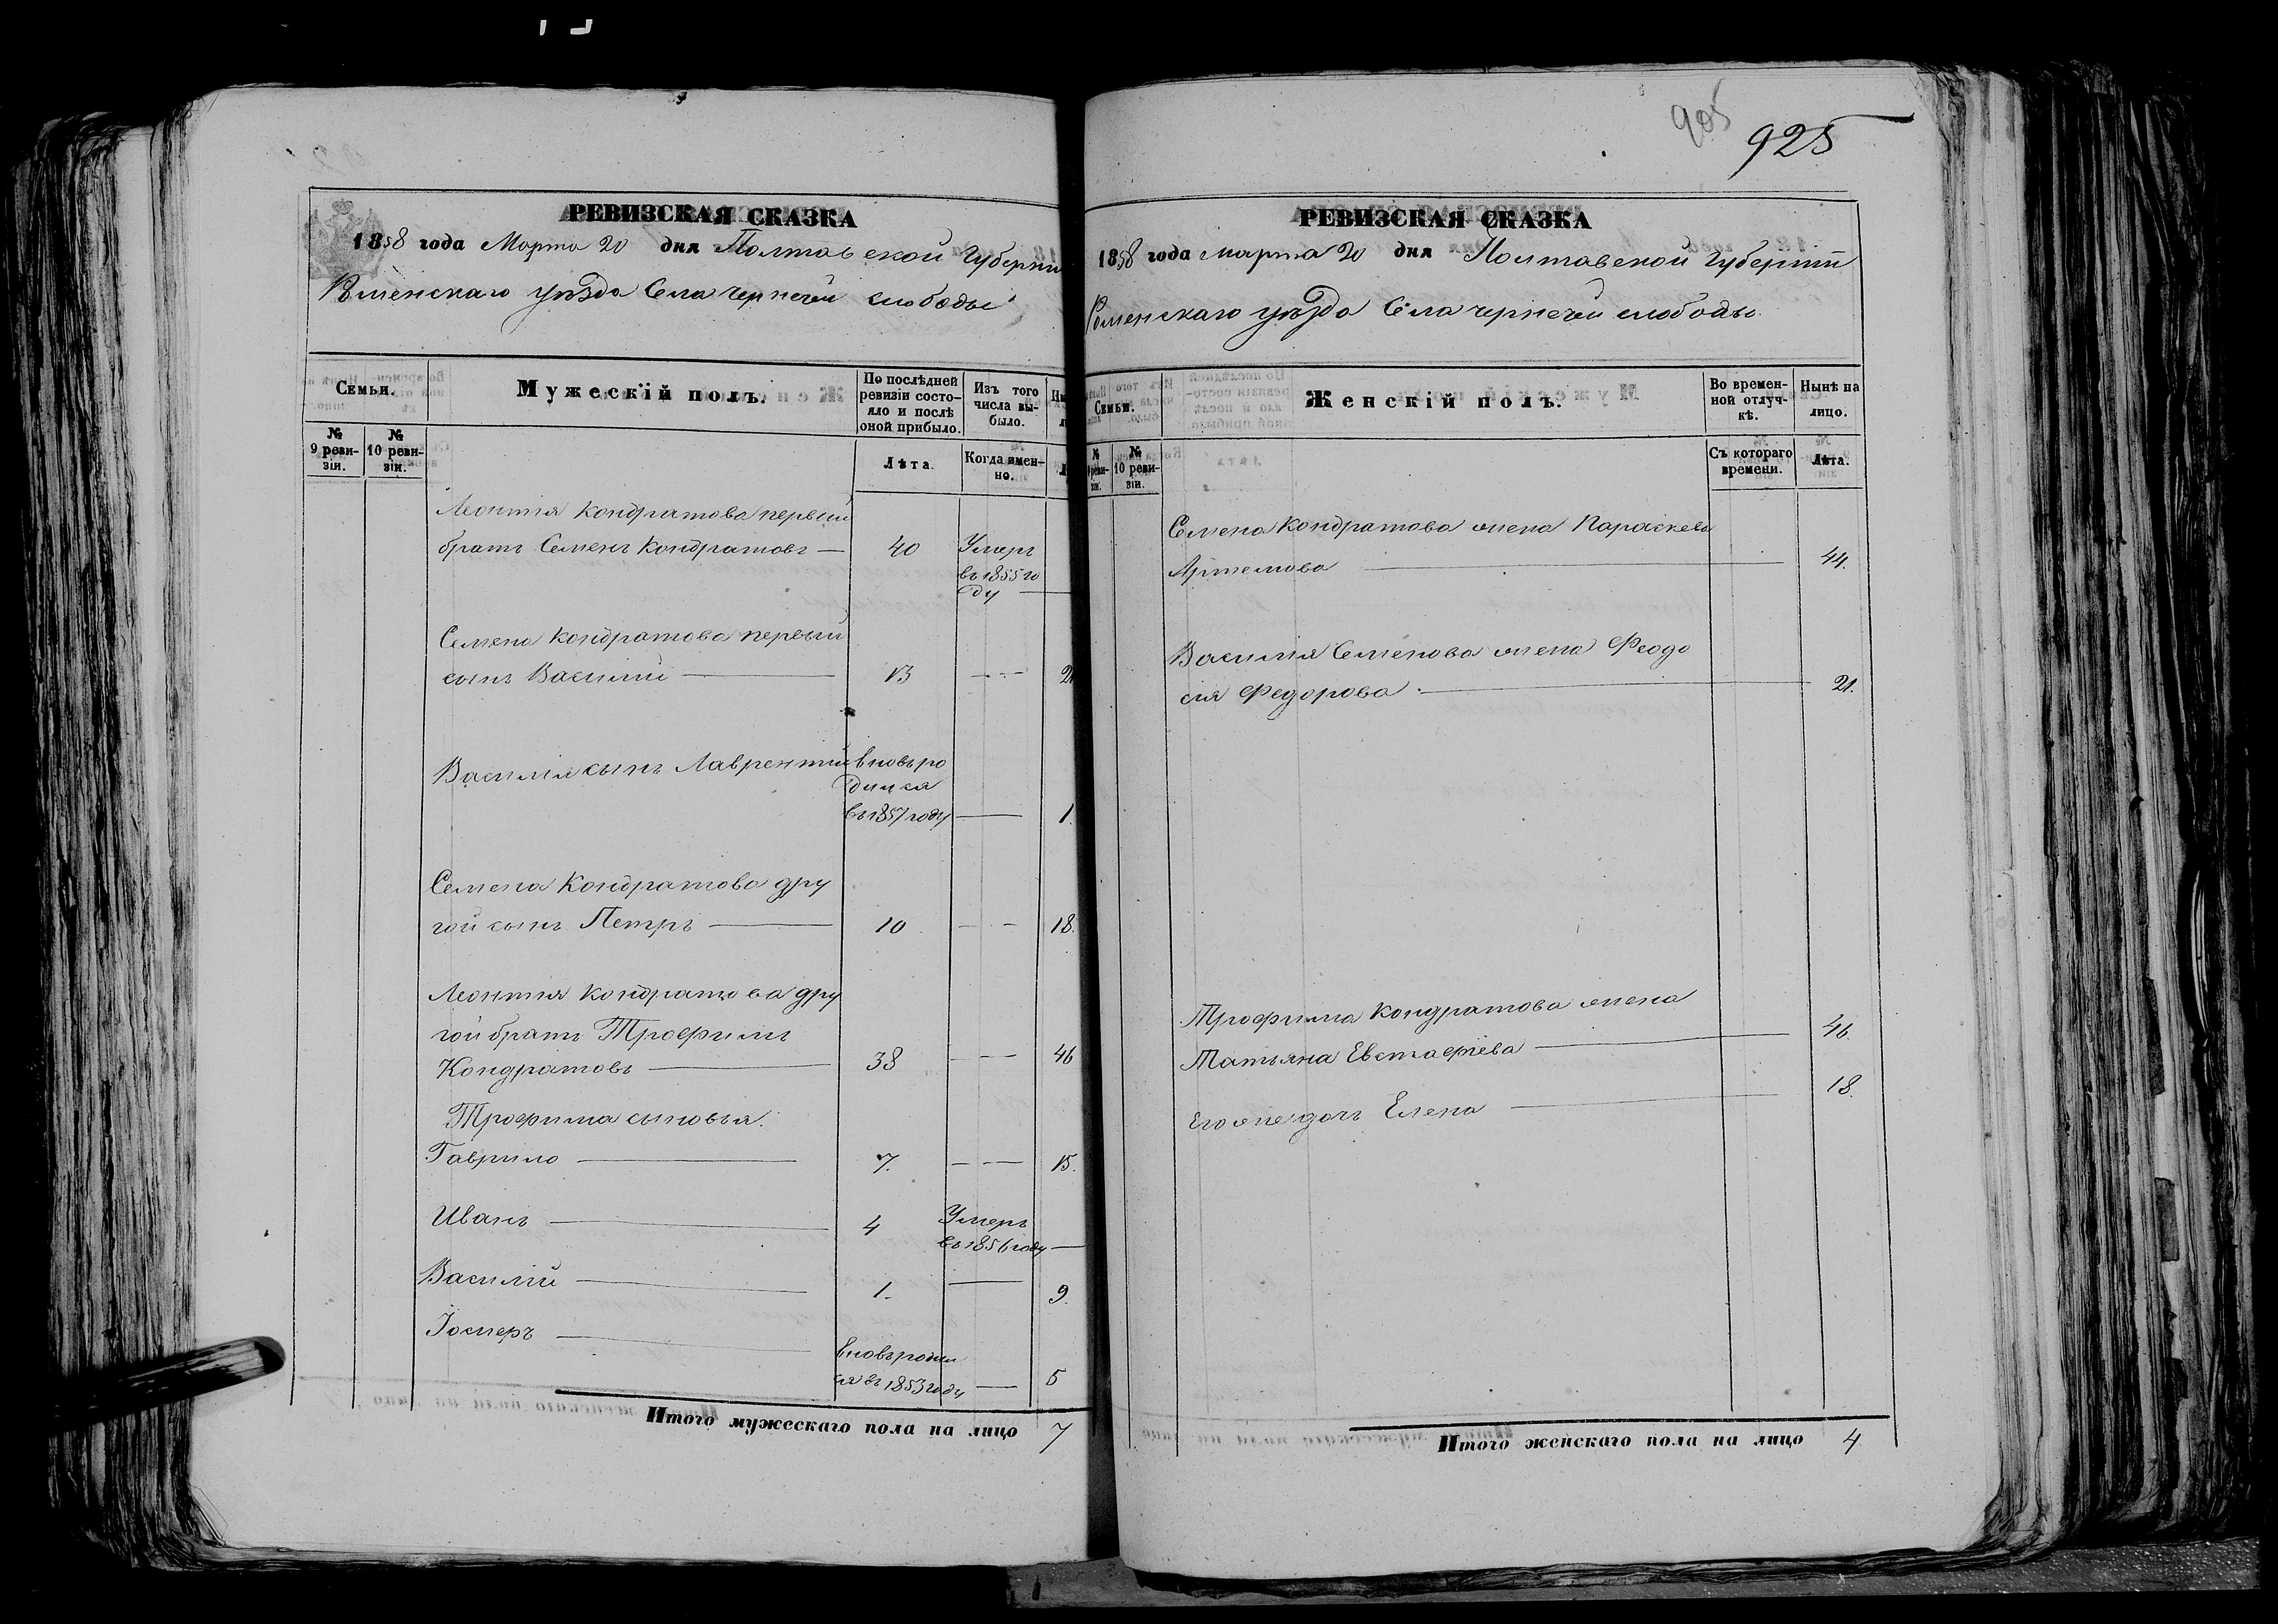 РЕВИЗСКАЯ СКАЗКА
1858 года Марта 20 дня Полтавской Губерни
Роменскаго уѣзда Села Чернечей слободы
Семьи.
Мужескій полъ.
По послѣдней ревизіи состояло и послѣ оной прибыло.
Изъ того числа выбыло.
№ 9 ревизіи.
№ 10 ревизіи.
Лѣта.
Когда именно.
Леонтія Кондратова первый
братъ Семенъ Кондратовъ — 40 Умеръ
въ 1855 го
ду —
Семена Кондратова первый
сынъ Василій — 13 — 21
Василія сынъ Лаврентій вновь ро
дился
въ 1857 году — 1.
Семена Кондратова дру
гой сынъ Петръ — 10 — 18.
Леонтія Кондратова дру
гой братъ Трофимъ
Кондратовъ — 38 — 46
Трофима сыновья.
Гаврило — 7. — 15.
Иванъ — 4 Умеръ
въ 1856 году —
Василій — 1. — 9.
Іосифъ —
вновь родил
ся въ 1853 году — 5
Итого мужескаго пола на лицо 7
905
925
РЕВИЗСКАЯ СКАЗКА
1858 года марта 20 дня Полтавской Губерніи
Роменскаго уѣзда Села чернечей слободы.
Семьи.
Женскій полъ.
Во временной отлучкѣ.
Нынѣ на лицо.
№ 10 ревизіи.
Съ котораго времени.
Лѣта.
Семена Кондратова жена Параскева
Артемова — 44.
Василія Семенова жена Феодо
сія Федорова — 21.
Трофима Кондратова жена
Татьяна Евстафіева — 46.
Его же дочь Елена — 18.
Итого женскаго пола на лицо 4